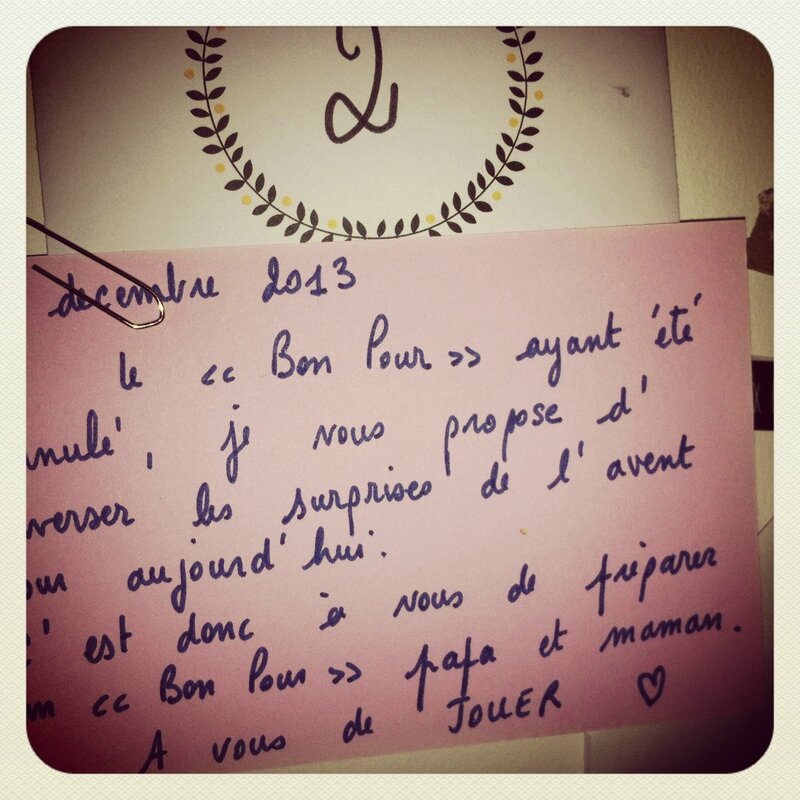 2
decembre 2013
le << Bon Pour >> ayant été
nnulé, je vous propose d'
verser les surprises de l'avent
our aujourd'hui.
C'est donc à vous de préparer
un << Bon Pour >> papa et maman.
A vous de JOUER ♡